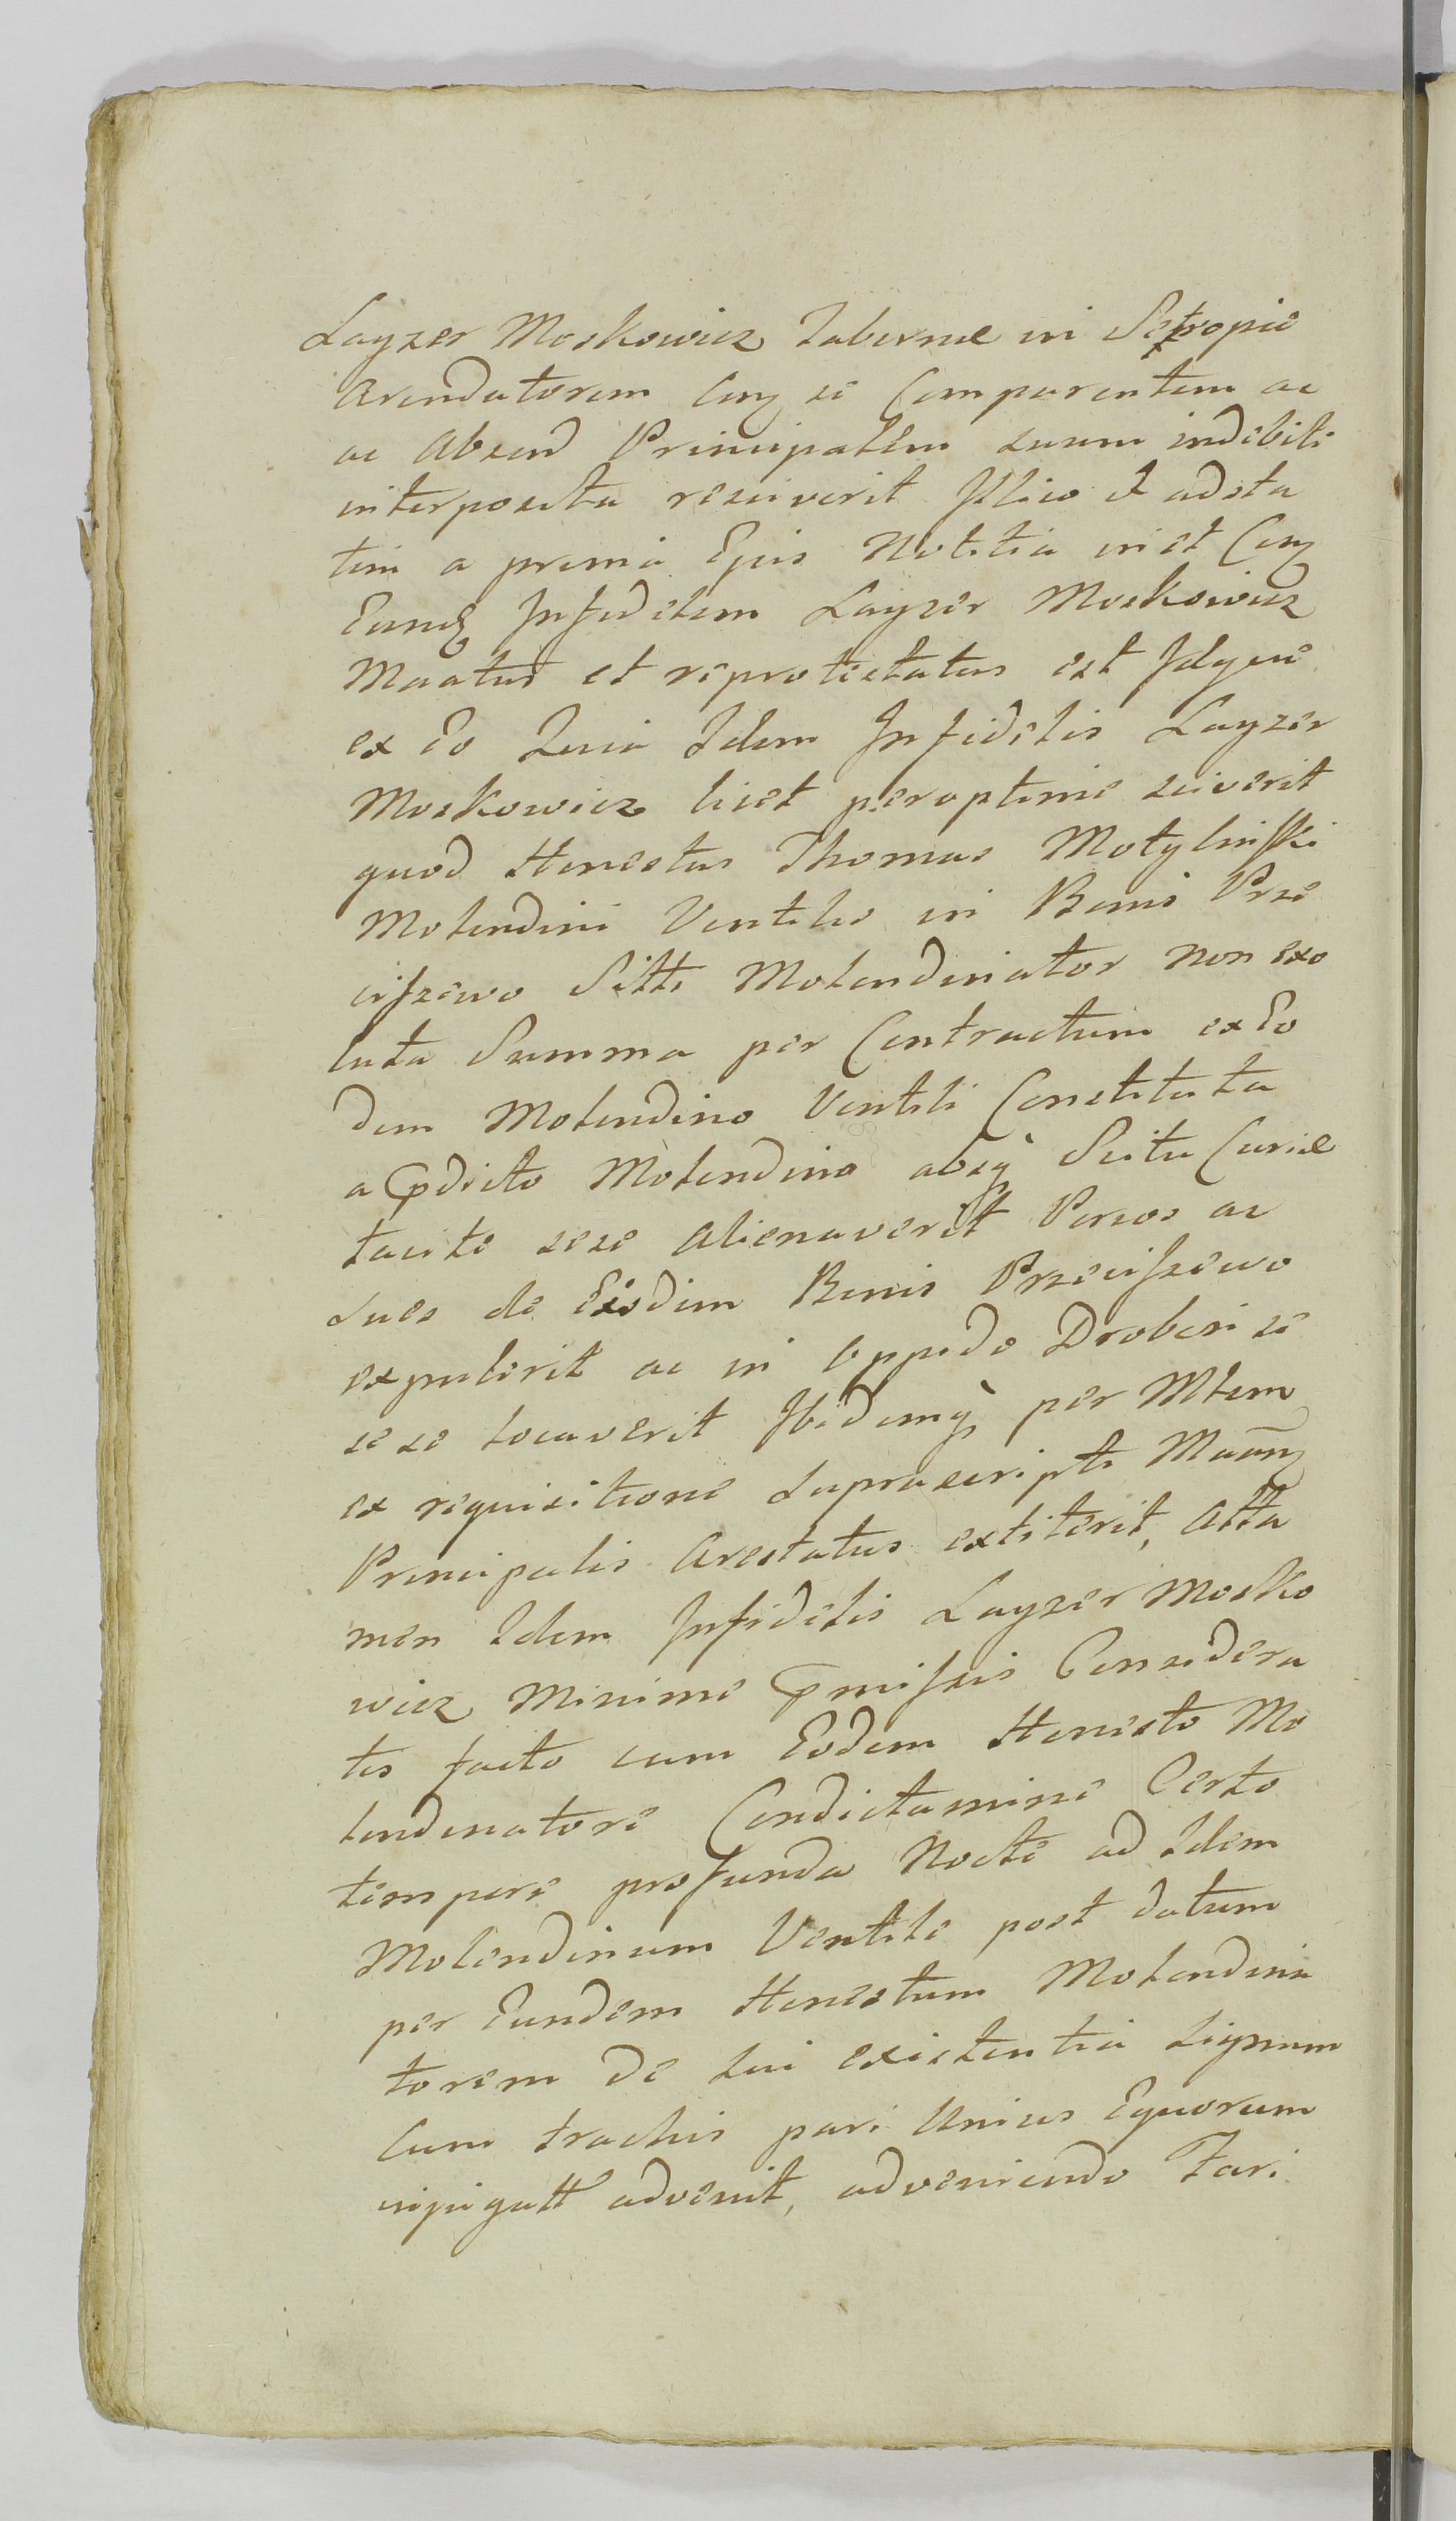 Layzer Moskowicz Tabernæ in Setropie
Arendatorem Conz se Comparentem ac
ac Absend Principalem suum indebite
interposita resciverit Illico et adsta
tim a prima Ejus Notitia in et Conz
Eundz Infidelem Layzer Moskowicz
Maatus et reprotestatus est Idque
ex Eo Quia Idem Infidelis Layzer
Moskowicz licet peroptime sciverit
quod Honestus Thomas Motylinski
Molendini Ventilis in Bonis Prze
ciszewo Sitti Molendinator non exo
luta Summa per Contractum ex Eo
dem Molendino Ventili Constituta
a Prdicto Molendino absq Scitu Curiæ
tacite sese Alienaverit Porcos ac
Sues de Eisdem Bonis Przeciszewo
expulerit ac in Oppido Drobin se
se se locaverit Ibidemq per Mtem
ex requisitione Suprascripti Maãnz
Principalis Arestatus extiterit, Atta
men Idem Infidelis Layzer Mosko
wicz Minime Prmissis Considera
tis facto cum Eodem Honesto Mo
lendinatore Condictamine Certo
tempore profunda Nocte ad Idem
Molendinum Ventile post datum
per Eundem Honestum Molendina
torem de sui existentia Signum
Cum trachis pari Unius Equorum
injugatt advenit, adveniendo Fari